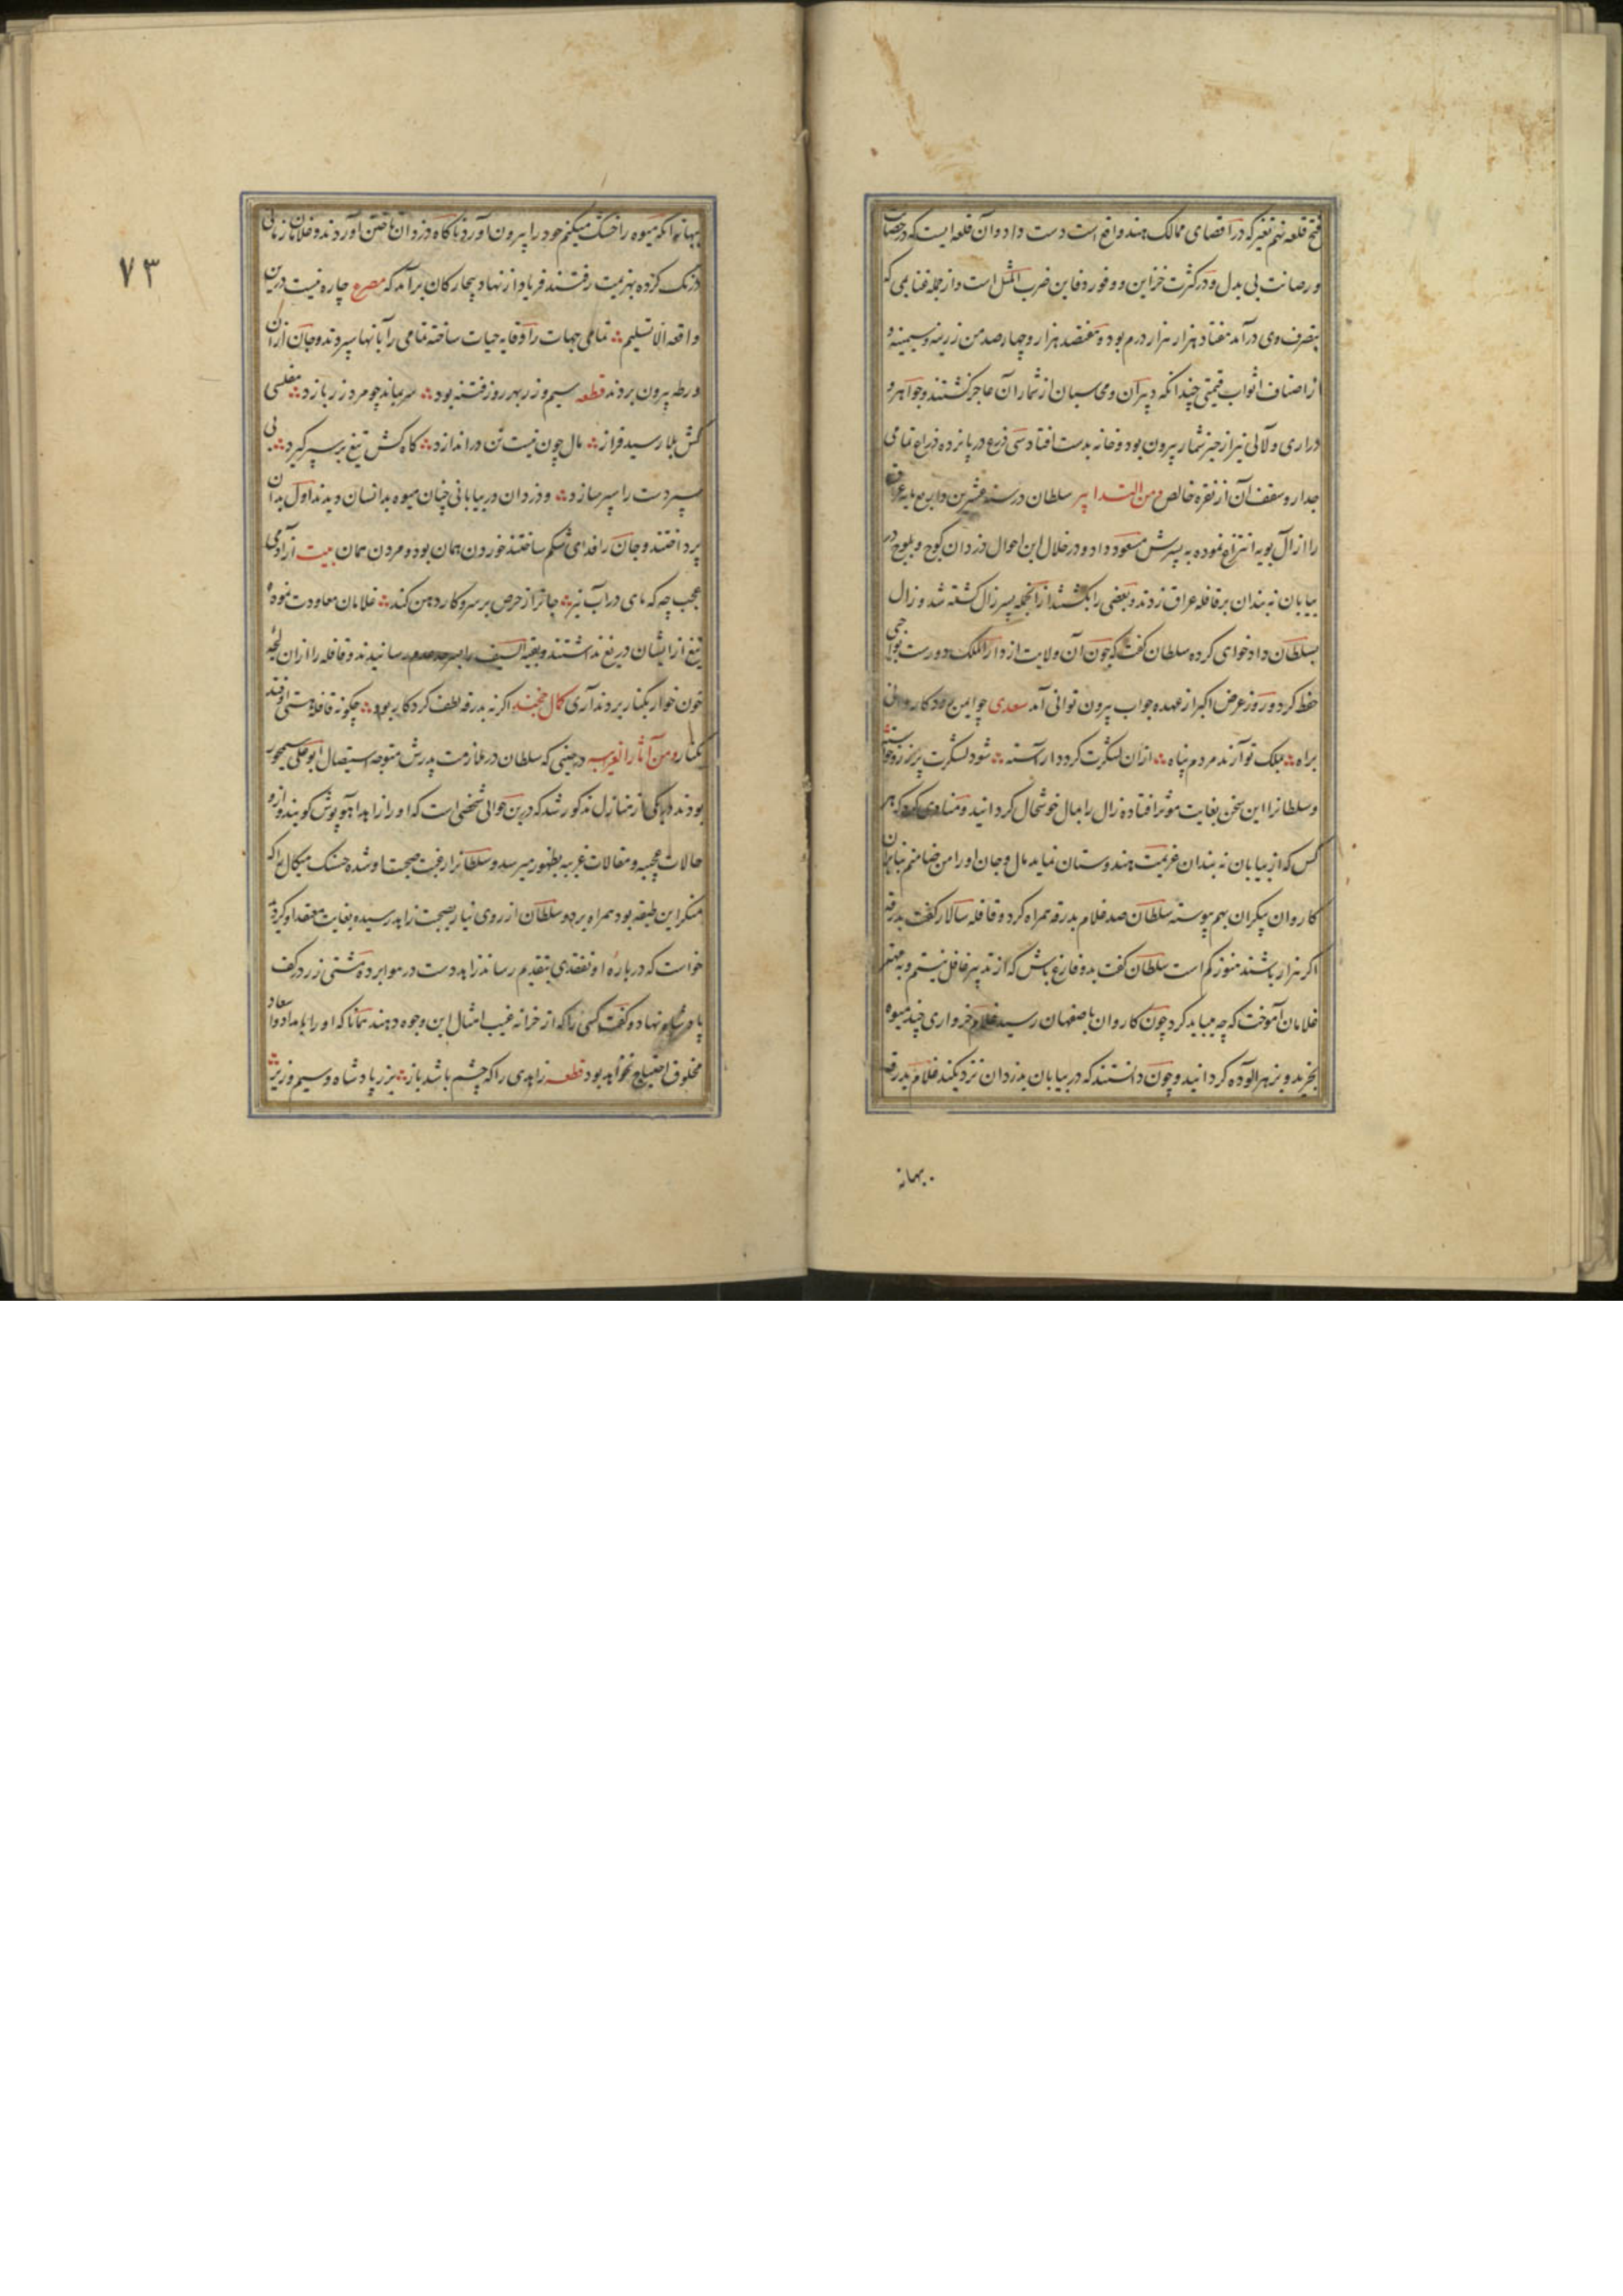 فتح قلعه نهم تغیر که در اقصای ممالک هند واقع است دست داد و آن قلعه ایست که در حصانت
و رصانت بی بدل و در کثرت خزاین و وفور دفاین ضرب المثل است و از جمله غنایمی که
بتصرف وی درآمد هفتاد هزار هزار درم بود و هفتصد هزار و چهارصد من زرینه و سیمینه و
از اصناف اثواب قیمتی چندانکه دبیران و محاسبان از شمار آن عاجز گشتند و جواهر و
دراری و لآلی نیز از حیز شمار بیرون بود و خانه بدست افتاد سی ذرع در پانزده ذراع تمامی
جدار و سقف آن از نقره خالص و من التدابیر سلطان در سنه عشرین و اربع مایه عراق
را از آل بویه انتزاع نموده به پسرش مسعود داد و در خلال این احوال دزدان کوچ و بلوچ در
بیابان نه بندان بر قافله عراق زدند و بعضی را بکشتند از آنجمله پسر زال کشته شد و زال
بسلطان دادخواهی کرده سلطان گفت که چون آن ولایت از دار الملک دورست بواجبی
حفظ کرد و روز عرض اکبر از عهده جواب بیرون توانی آمد سعدی چو ایمن بود کاروانی
براه بملک تو آرند مردم پناه از ان لشکرت گردد آراسته شود لشکرت پر ز زر و خواسته
و سلطانرا این سخن بغایت موثر افتاده زال را بمال خوشحال گردانید و منادی کرد که هر
کس که از بیابان نه بندان عزیمت هندوستان نماید مال و جان او را من ضامنم بنابران
کاروان بیکران بهم پیوسته سلطان صد غلام بدرقه همراه کرد و قافله سالار گفت بدرقه
اگر هزار باشند هنوز کم است سلطان گفت بدو فارغ باش که از تدبیر غافل نیستم و به مهتر
غلامان آموخت که چه میباید کرد چون کاروان باصفهان رسید غلام خرواری چند میوه
بخرید و بزهر آلوده گردانید و چون دانستند که در بیابان بدزدان نزدیکند غلام بدرقه
بهانه
۷۳
بهانه آنکه میوه را خشک میکنم خود را بیرون آورد ناگاه دزدان تاختن آوردند و غلامان زمانی
درنگ کرده بهزیمت رفتند فریاد از نهاد بیچارکان برآمد که مصرع چاره نیست درین
واقعه الا تسلیم تمامی جهات را وقایه حیات ساخته تمامی را بآنها سپردند و جان از آن
ورطه بیرون بردند قطعه سیم و زر بهر روز فتنه بود سر بماند چو مرد زر بازد مفلسی
کش بلا رسید فراز مال چون نیست تن در اندازد کاه کش تیغ بر سپر گیرد بی
سپر دست را سپر سازد و دزدان در بیابانی چنان میوه بدانسان دیدند اول بدان
پرداختند و جان را فدای شکم ساختند خوردن همان بود و مردن همان بیت از آدمی
عجب چه که ماهی در آب نیز جانرا از حرص بر سر و کار دهن کند غلامان معاودت نموده
تیغ از ایشان دریغ نداشتند و بقیه السیف را بسرحد عدم رسانیدند و قافله را از ان لجه
خون خوار بکنار بردند آری کمال خجند اگر نه بدرقه لطف کردکار بود چگونه قافله هستی افتد
بکنار و من آثار الغریبه در حینی که سلطان در ملازمت پدرش متوجه استیصال ابو علی سیمجور
بودند در یکی از منازل مذکور شد که درین حوالی شخصی است که او را زاهد آهو پوش گویند و از و
حالات عجیبه و مقالات غریبه بظهور میرسد و سلطانرا رغبت صحبت او شده حسنک میکال را که
منکر این طبقه بود همراه برد و سلطان از روی نیاز بصحبت زاهد رسیده بغایت معتقد او گردیده
خواست که درباره او تفقدی بتقدیم رساند زاهد دست در هوا برده مشتی زر در کف
پادشاه نهاد و گفت کسی را که از خزانه غیب امثال این وجوه دهند همانا که او را بامداد و اسعاد
مخلوق احتیاج نخواهد بود قطعه زاهدی را که چشم باشد باز بزر پادشاه و سیم وزیر